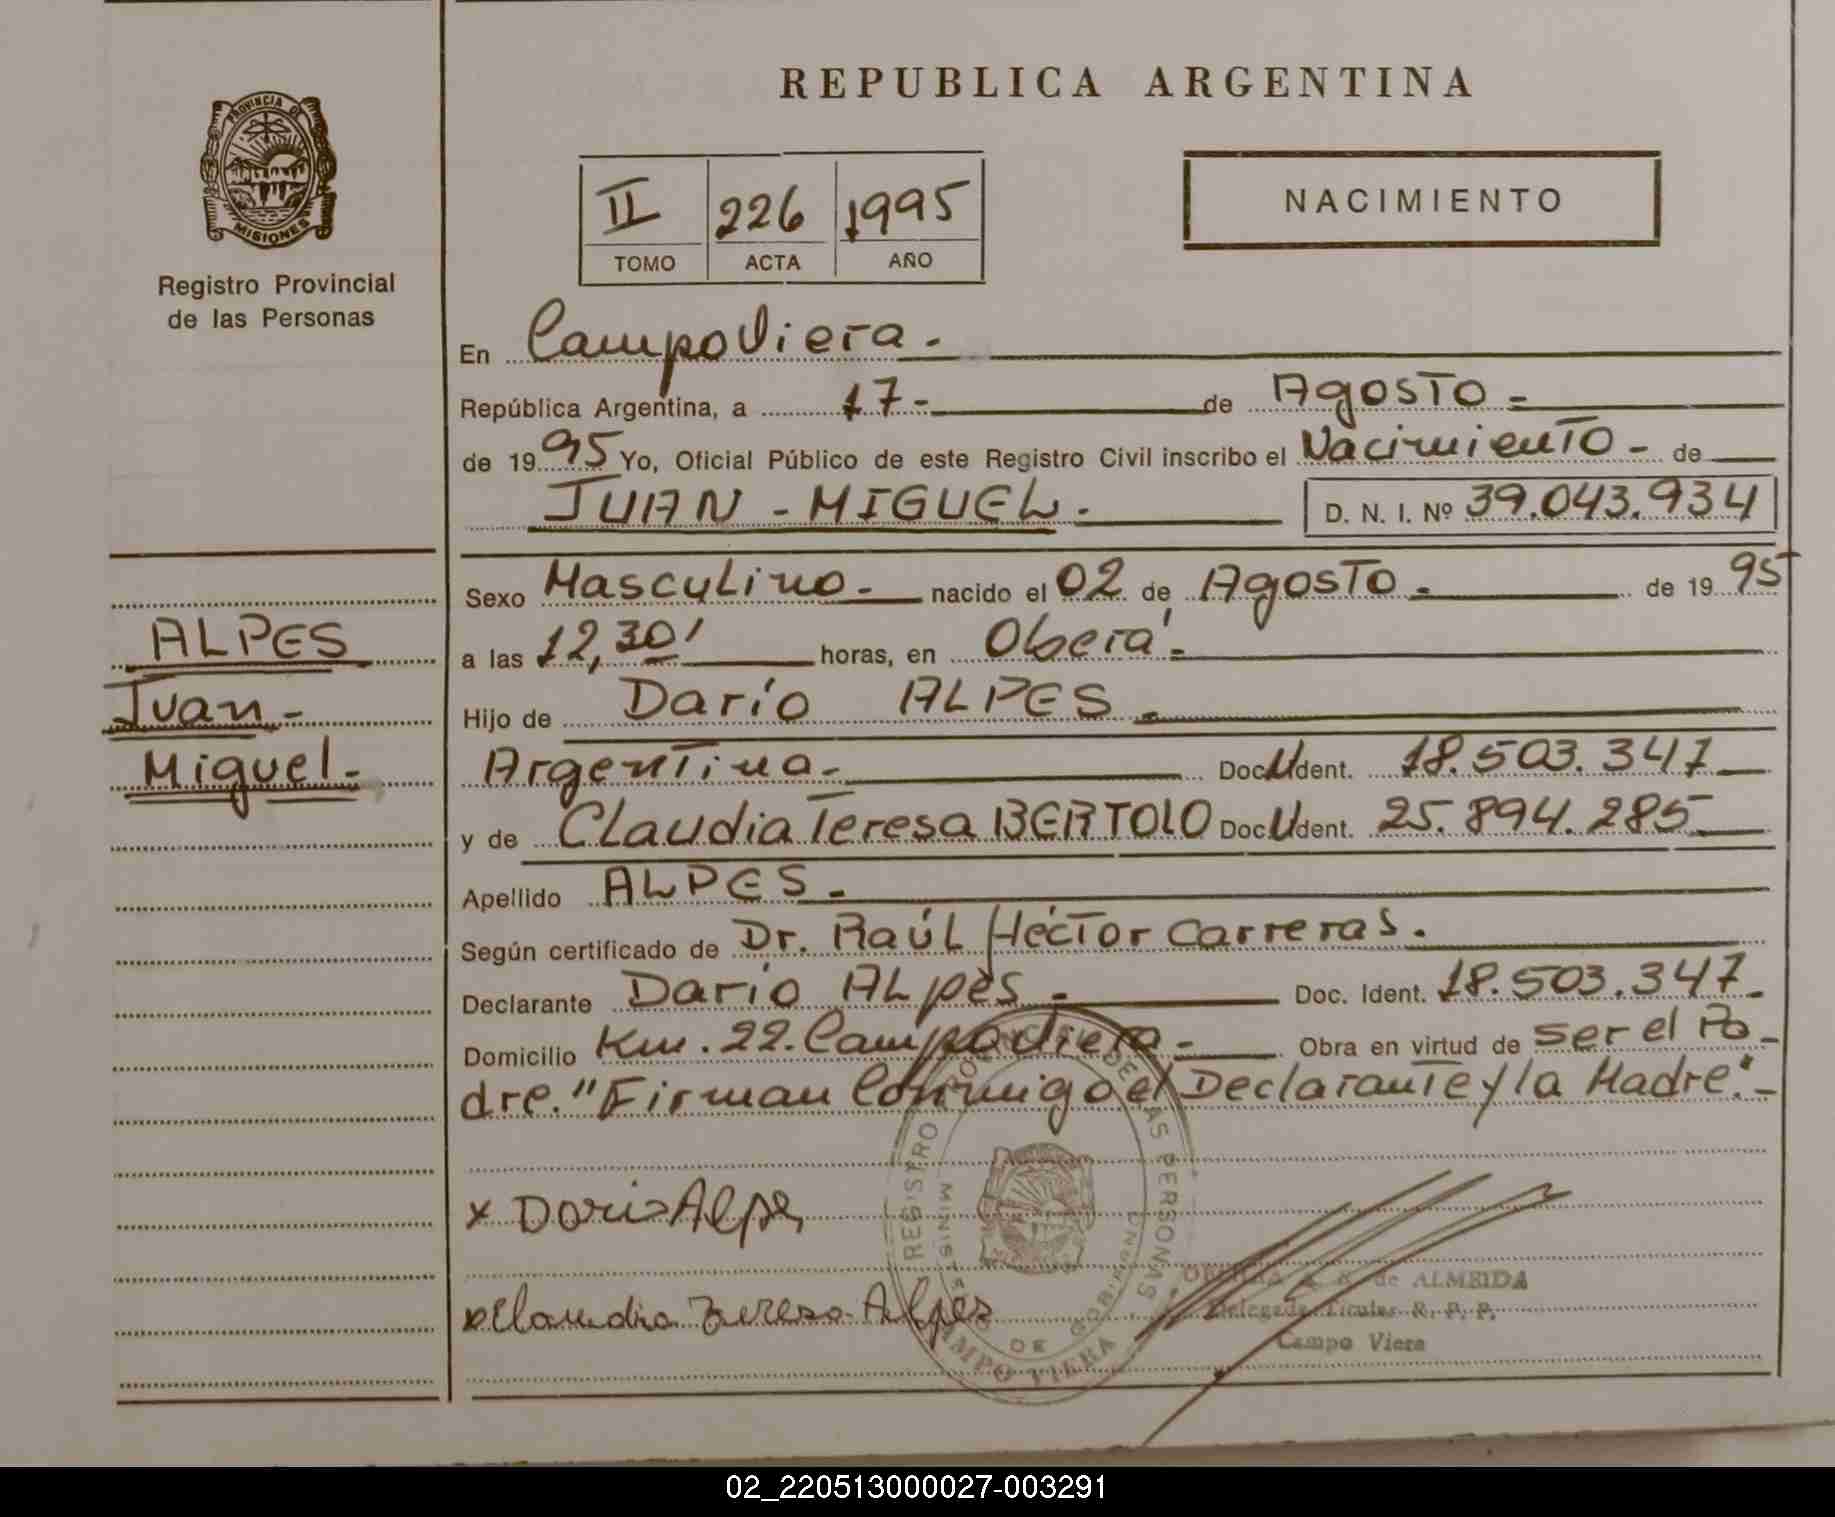 REPUBLICA ARGENTINA
PROVINCIA DE
MISIONES
Registro Provincial
de las Personas
II 226 1995
TOMO ACTA AÑO
NACIMIENTO
En Campo Viera.
República Argentina, a 17- de Agosto-
de 1995 Yo, Oficial Público de este Registro Civil inscribo el Nacimiento- de
JUAN - MIGUEL. D. N. I. Nº 39.043.934
ALPES
Juan-
Miguel-
Sexo Masculino- nacido el 02 de Agosto- de 1995
a las 12,30' horas, en Oberá-
Hijo de Darío ALPES-
Argentina- Doc. U Ident. 18.503.347
y de Claudia Teresa BERTOLO Doc. U Ident. 25.894.285
Apellido ALPES-
Según certificado de Dr. Raúl Héctor Carreras.
Declarante Darío ALpes- Doc. Ident. 18.503.347-
Domicilio Km. 22. Campo Viera- Obra en virtud de ser el Pa-
dre. "Firman Conmigo el Declarante y la Madre."-
x Dario Alpes
x Claudia Teresa Alpes
REGISTRO PROVINCIAL DE LAS PERSONAS
MINISTERIO DE GOBIERNO
CAMPO VIERA
de ALMEIDA
Delegada Titular R. P. P.
Campo Viera
02_220513000027-003291